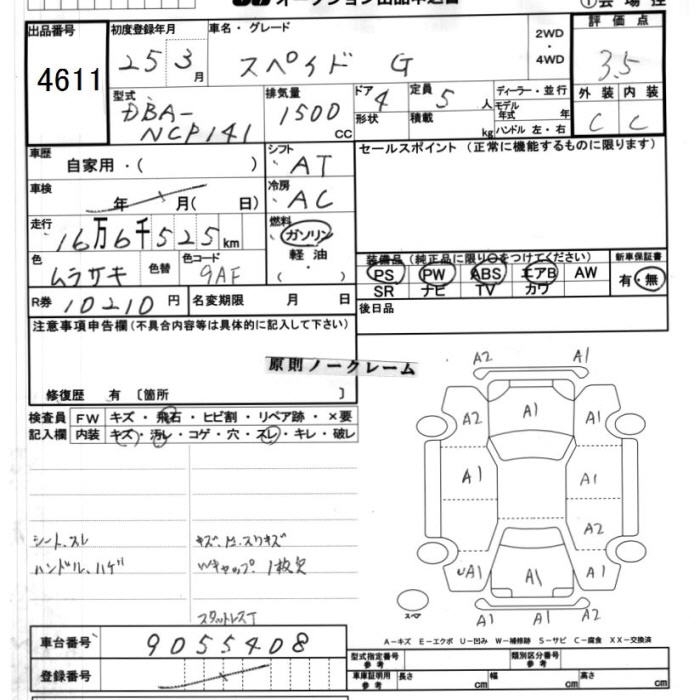 オークション出品申込書
①会場控
出品番号 初度登録年月 車名・グレード 2WD・4WD 評価点
4611 25 3月 スペイド G 3.5
型式 DBA-NCP141 排気量 1500 CC ドア 4 形状 定員 5 人 積載 kg ディーラー・並行 モデル年式 年 ハンドル 左・右 外装 内装
C C
車歴 自家用・( ) シフト AT セールスポイント (正常に機能するものに限ります)
車検 年 月( 日) 冷房 AC
走行 16万6千525km 燃料 ガソリン 軽油
色 ムラサキ 色替 色コード 9AF
装備品(純正品に限り○をつけてください) 新車保証書
PS PW ABS エアB AW 有・無
SR ナビ TV カワ
R券 10210円 名変期限 月 日 後日品
注意事項申告欄(不具合内容等は具体的に記入して下さい)
原則ノークレーム
修復歴 有 〔箇所 〕
検査員 FW キズ・飛石・ヒビ割・リペア跡・×要
記入欄 内装 キズ・汚レ・コゲ・穴・スレ・キレ・破レ
A2 A1
A2 A1 A1
A1 A1
A2
UA1 A1 A1
A1 A1 A2
シート、スレ
ハンドル、ハゲ
Wキャップ 1枚欠
スタットレスT
スペア
A-キズ E-エクボ U-凹み W-補修跡 S-サビ C-腐食 XX-交換済
車台番号 9055408
型式指定番号 参考 類別区分番号 参考
登録番号
車庫証明用 参考 長さ cm 幅 cm 高さ cm